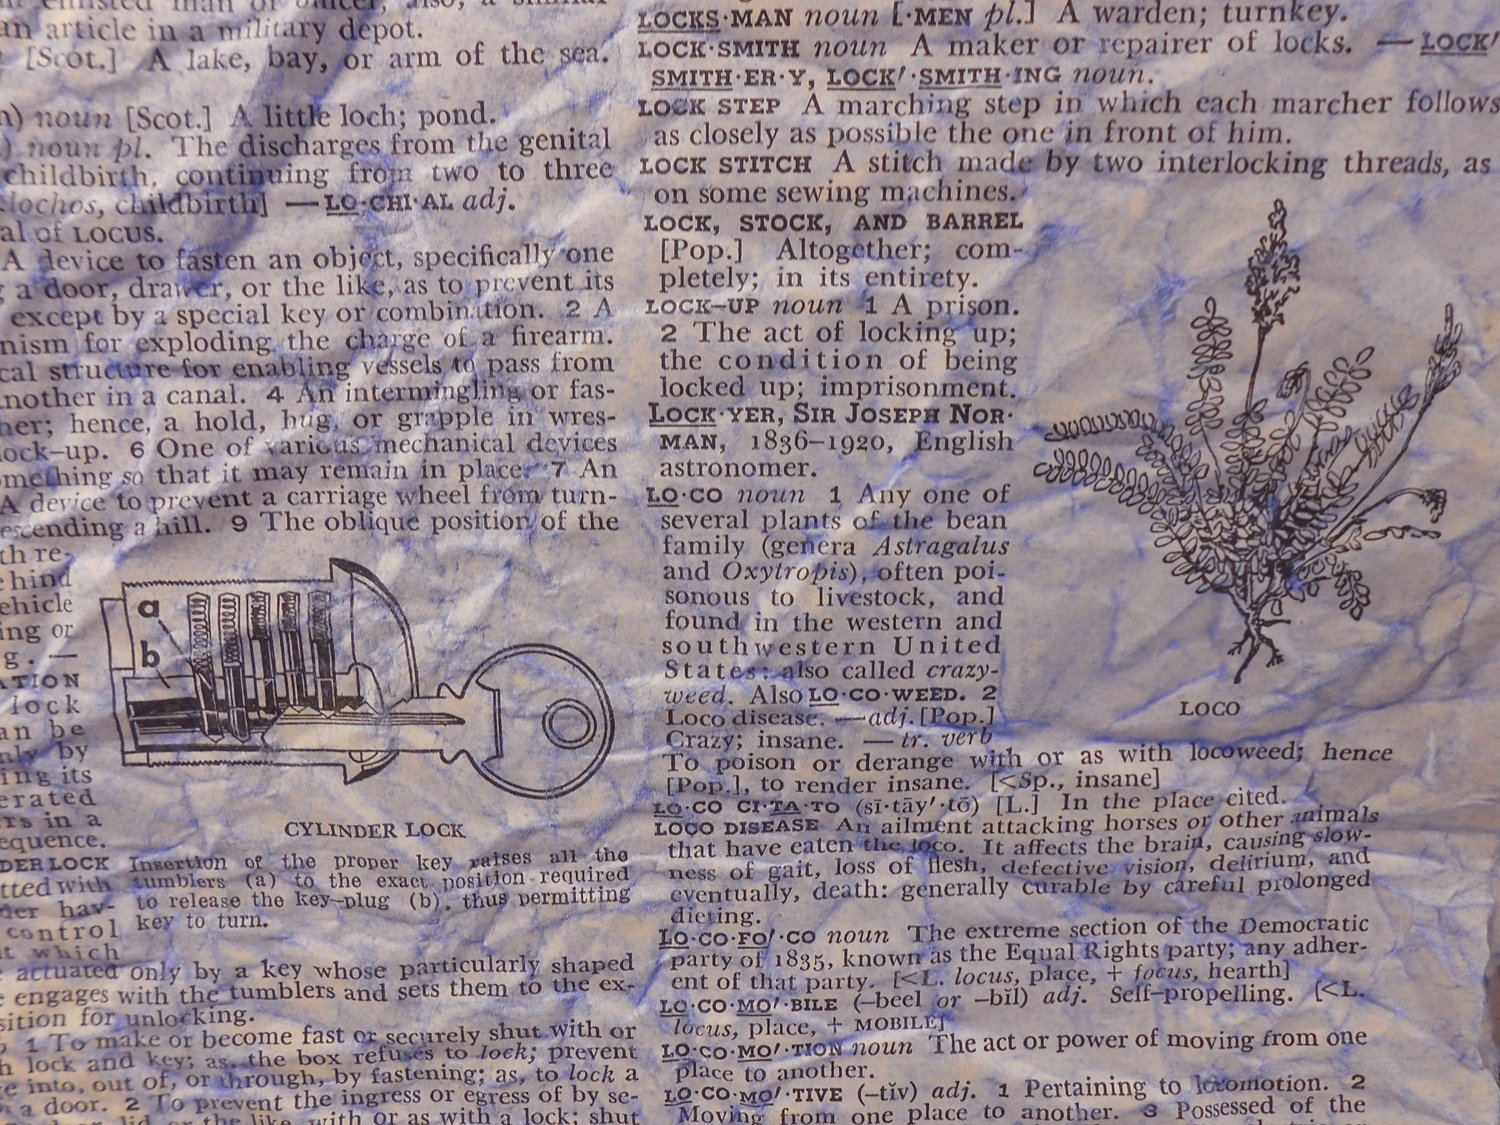 an article in a military depot.
[Scot.] A lake, bay, or arm of the sea.
noun [Scot.] A little loch; pond.
noun pl. The discharges from the genital
childbirth, continuing from two to three
lochos, childbirth] — LO·CHI·AL adj.
al of LOCUS.
A device to fasten an object, specifically one
a door, drawer, or the like, as to prevent its
except by a special key or combination. 2 A
nism for exploding the charge of a firearm.
cal structure for enabling vessels to pass from
nother in a canal. 4 An intermingling or fas-
her; hence, a hold, hug, or grapple in wres-
ock-up. 6 One of various mechanical devices
omething so that it may remain in place. 7 An
A device to prevent a carriage wheel from turn-
escending a hill. 9 The oblique position of the
th re-
ehind
ehicle
ing or
g. —
ATION
lock
an be
nly by
ing its
erated
ers in a
equence.
DER LOCK
tted with
der hav-
control
t which
a
b
CYLINDER LOCK
Insertion of the proper key raises all the
tumblers (a) to the exact position required
to release the key-plug (b), thus permitting
key to turn.
actuated only by a key whose particularly shaped
engages with the tumblers and sets them to the ex-
sition for unlocking.
1 To make or become fast or securely shut with or
h lock and key; as, the box refuses to lock; prevent
into, out of, or through, by fastening; as, to lock a
a door. 2 To prevent the ingress or egress of by se-
the like, with or as with a lock; shut
LOCKS·MAN noun [·MEN pl.] A warden; turnkey.
LOCK·SMITH noun A maker or repairer of locks. — LOCK′
SMITH·ER·Y, LOCK′·SMITH·ING noun.
LOCK STEP A marching step in which each marcher follows
as closely as possible the one in front of him.
LOCK STITCH A stitch made by two interlocking threads, as
on some sewing machines.
LOCK, STOCK, AND BARREL
[Pop.] Altogether; com-
pletely; in its entirety.
LOCK-UP noun 1 A prison.
2 The act of locking up;
the condition of being
locked up; imprisonment.
LOCK·YER, SIR JOSEPH NOR·
MAN, 1836–1920, English
astronomer.
LO·CO noun 1 Any one of
several plants of the bean
family (genera Astragalus
and Oxytropis), often poi-
sonous to livestock, and
found in the western and
southwestern United
States: also called crazy-
weed. Also LO·CO·WEED. 2
Loco disease. — adj. [Pop.]
Crazy; insane. — tr. verb
To poison or derange with or as with locoweed; hence
[Pop.], to render insane. [<Sp., insane]
LO·CO CI·TA·TO (sī·tāy′·tō) [L.] In the place cited.
LOCO DISEASE An ailment attacking horses or other animals
that have eaten the loco. It affects the brain, causing slow-
ness of gait, loss of flesh, defective vision, delirium, and
eventually, death: generally curable by careful prolonged
dieting.
LO·CO·FO′·CO noun The extreme section of the Democratic
party of 1835, known as the Equal Rights party; any adher-
ent of that party. [<L. locus, place, + focus, hearth]
LO·CO·MO′·BILE (–beel or –bĭl) adj. Self-propelling. [<L.
locus, place, + MOBILE]
LO·CO·MO′·TION noun The act or power of moving from one
place to another.
LO·CO·MO′·TIVE (–tĭv) adj. 1 Pertaining to locomotion. 2
Moving from one place to another. 3 Possessed of the
LOCO